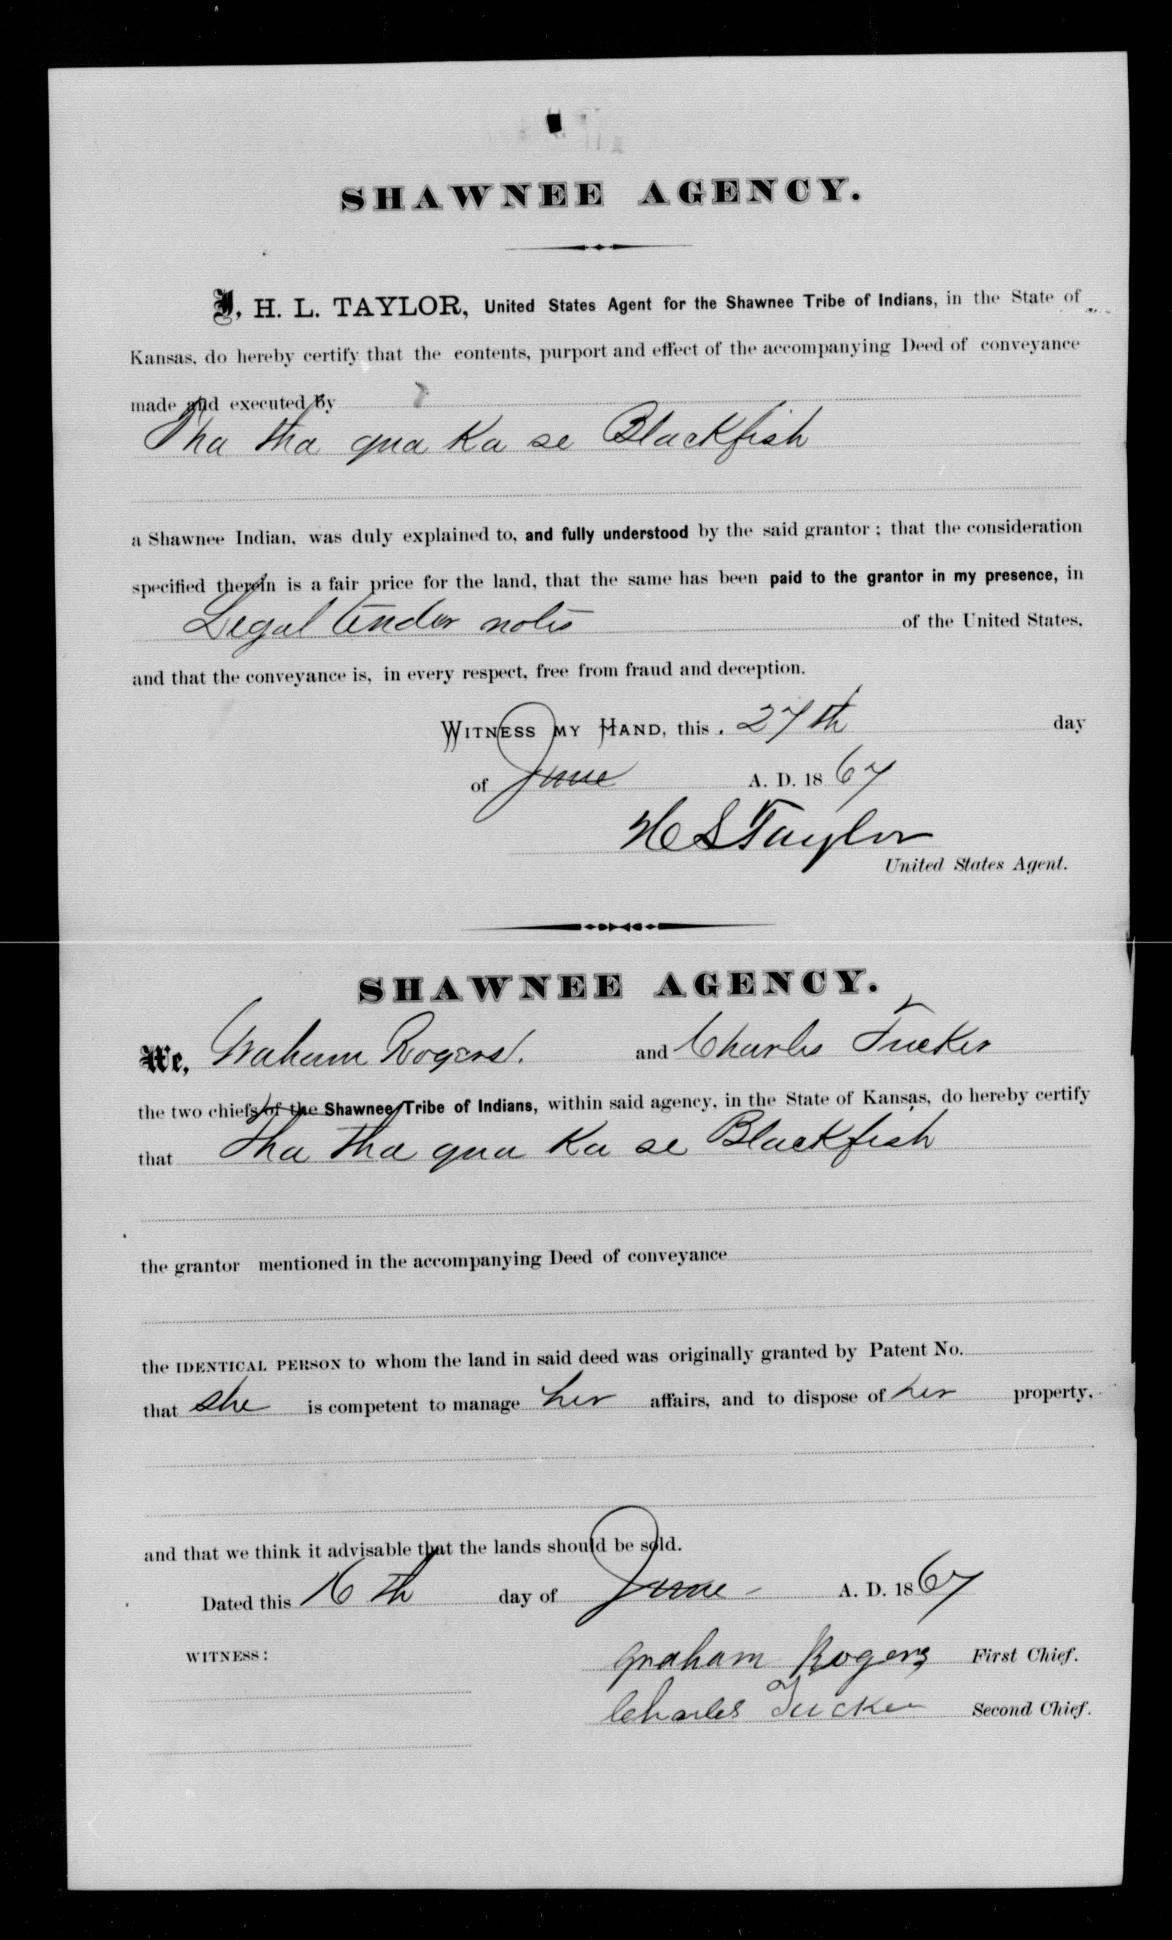 SHAWNEE AGENCY.
I, H. L. TAYLOR, United States Agent for the Shawnee Tribe of Indians, in the State of
Kansas, do hereby certify that the contents, purport and effect of the accompanying Deed of conveyance
made and executed by
Tha tha qua Ka se Blackfish
a Shawnee Indian, was duly explained to, and fully understood by the said grantor; that the consideration
specified therein is a fair price for the land, that the same has been paid to the grantor in my presence, in
Legal tender notes of the United States,
and that the conveyance is, in every respect, free from fraud and deception.
WITNESS MY HAND, this 27th day
of June A. D. 1867
H L Taylor
United States Agent.
SHAWNEE AGENCY.
We, Graham Rogers. and Charles Tucker
the two chiefs of the Shawnee Tribe of Indians, within said agency, in the State of Kansas, do hereby certify
that Tha tha qua Ka se Blackfish
the grantor mentioned in the accompanying Deed of conveyance
the IDENTICAL PERSON to whom the land in said deed was originally granted by Patent No.
that she is competent to manage her affairs, and to dispose of her property,
and that we think it advisable that the lands should be sold.
Dated this 16th day of June A. D. 1867
WITNESS: Graham Rogers First Chief.
Charles Tucker Second Chief.